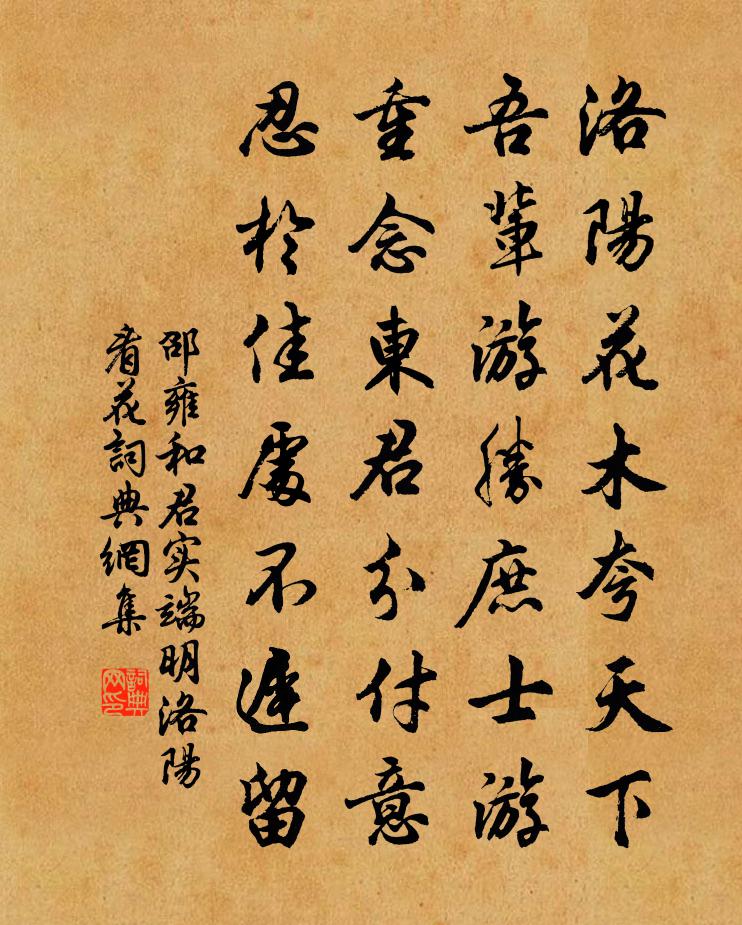 洛陽花木夸天下
吾輩游勝庶士游
重念東君分付意
忍於佳處不遲留
邵雍和君实端明洛陽
看花詞典網集
詞典
网印